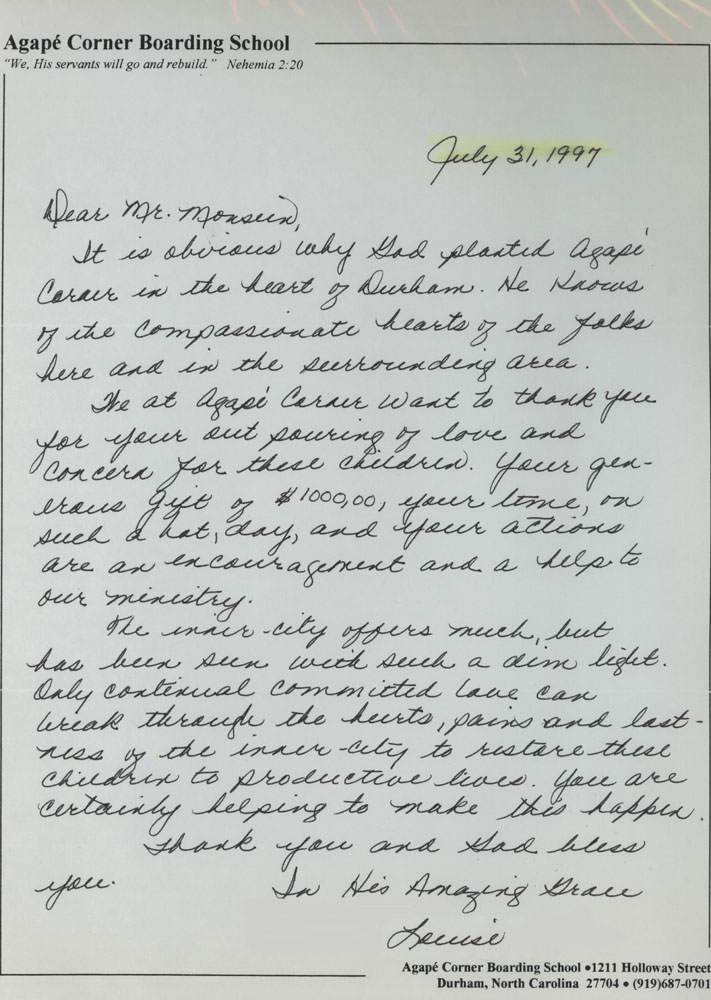 Agapé Corner Boarding School
"We, His servants will go and rebuild." Nehemia 2:20
July 31, 1997
Dear Mr. Monsein,
It is obvious why God planted Agapé
Corner in the heart of Durham. He knows
of the compassionate hearts of the folks
here and in the surrounding area.
We at Agapé Corner want to thank you
for your out pouring of love and
concern for these children. Your gen-
erous gift of $1000,00, your time, on
such a hot, day, and your actions
are an encouragement and a help to
our ministry.
The inner-city offers much, but
has been seen with such a dim light.
Only continual committed love can
break through the hurts, pains and lost-
ness of the inner-city to restore these
children to productive lives. You are
certainly helping to make this happen.
Thank you and God bless
you.
In His Amazing Grace
Louise
Agapé Corner Boarding School •1211 Holloway Street
Durham, North Carolina 27704 • (919)687-0701